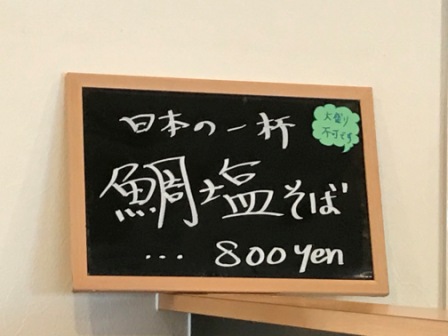 日本の一杯
大盛り
不可です
鯛塩そば
... 800 yen